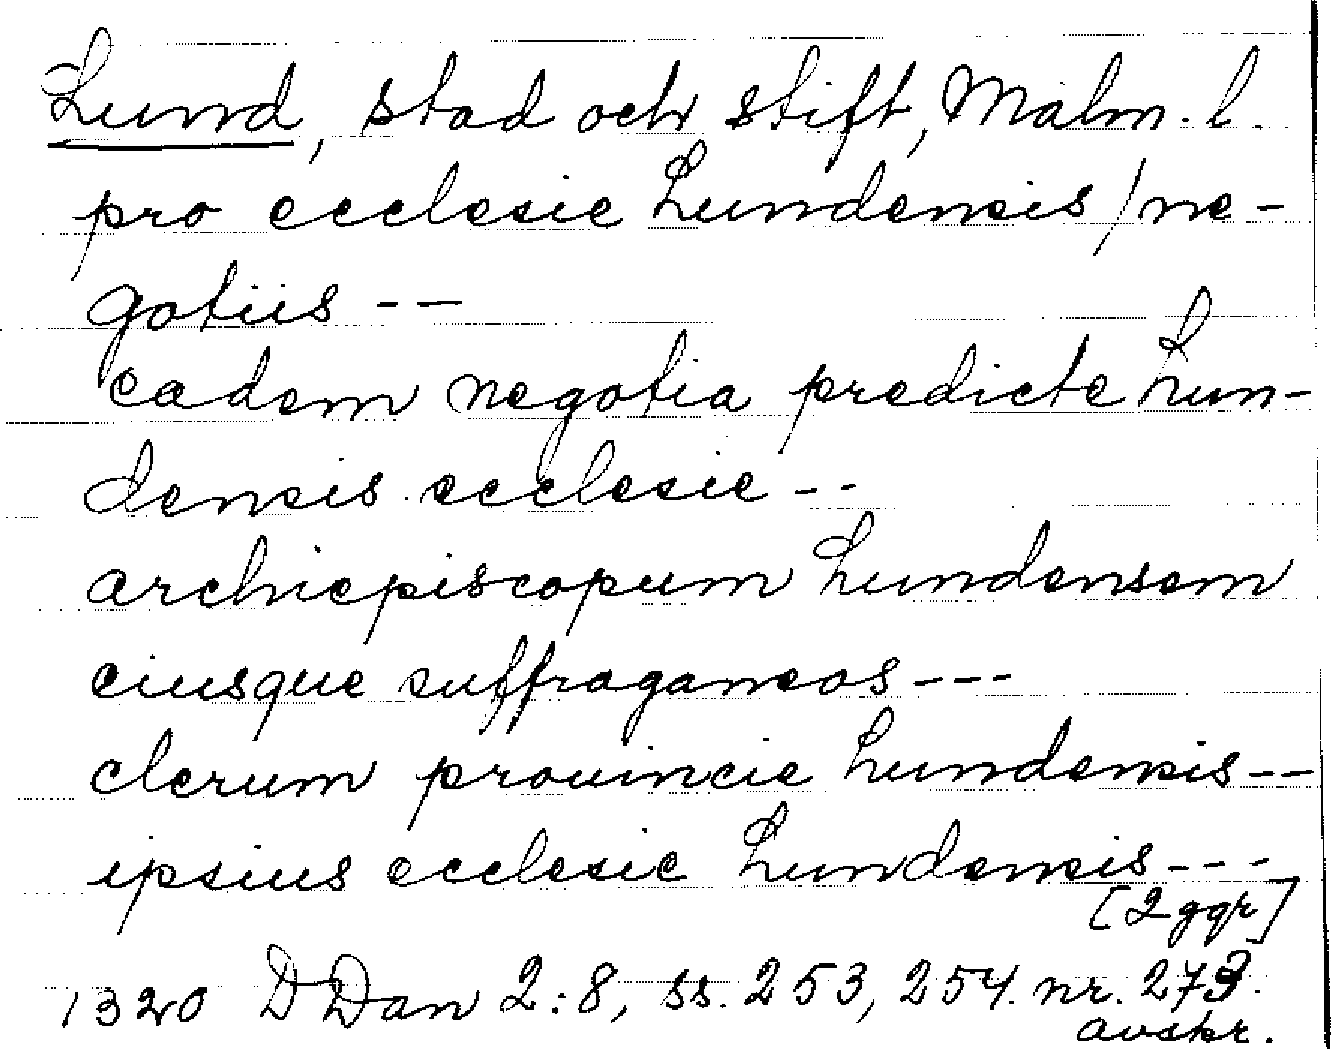 Lund, stad och stift, Malm. l.
pro ecclesie Lundensis / ne-
gotiis - -
eadem negotia predicte Lun-
densis ecclesie - -
archiepiscopum Lundensem
eiusque suffraganeos - - -
clerum prouincie Lundensis - -
ipsius ecclesie Lundensis - - -
[2 ggr]
1320 DDan 2:8, ss. 253, 254. nr. 273.
avskr.